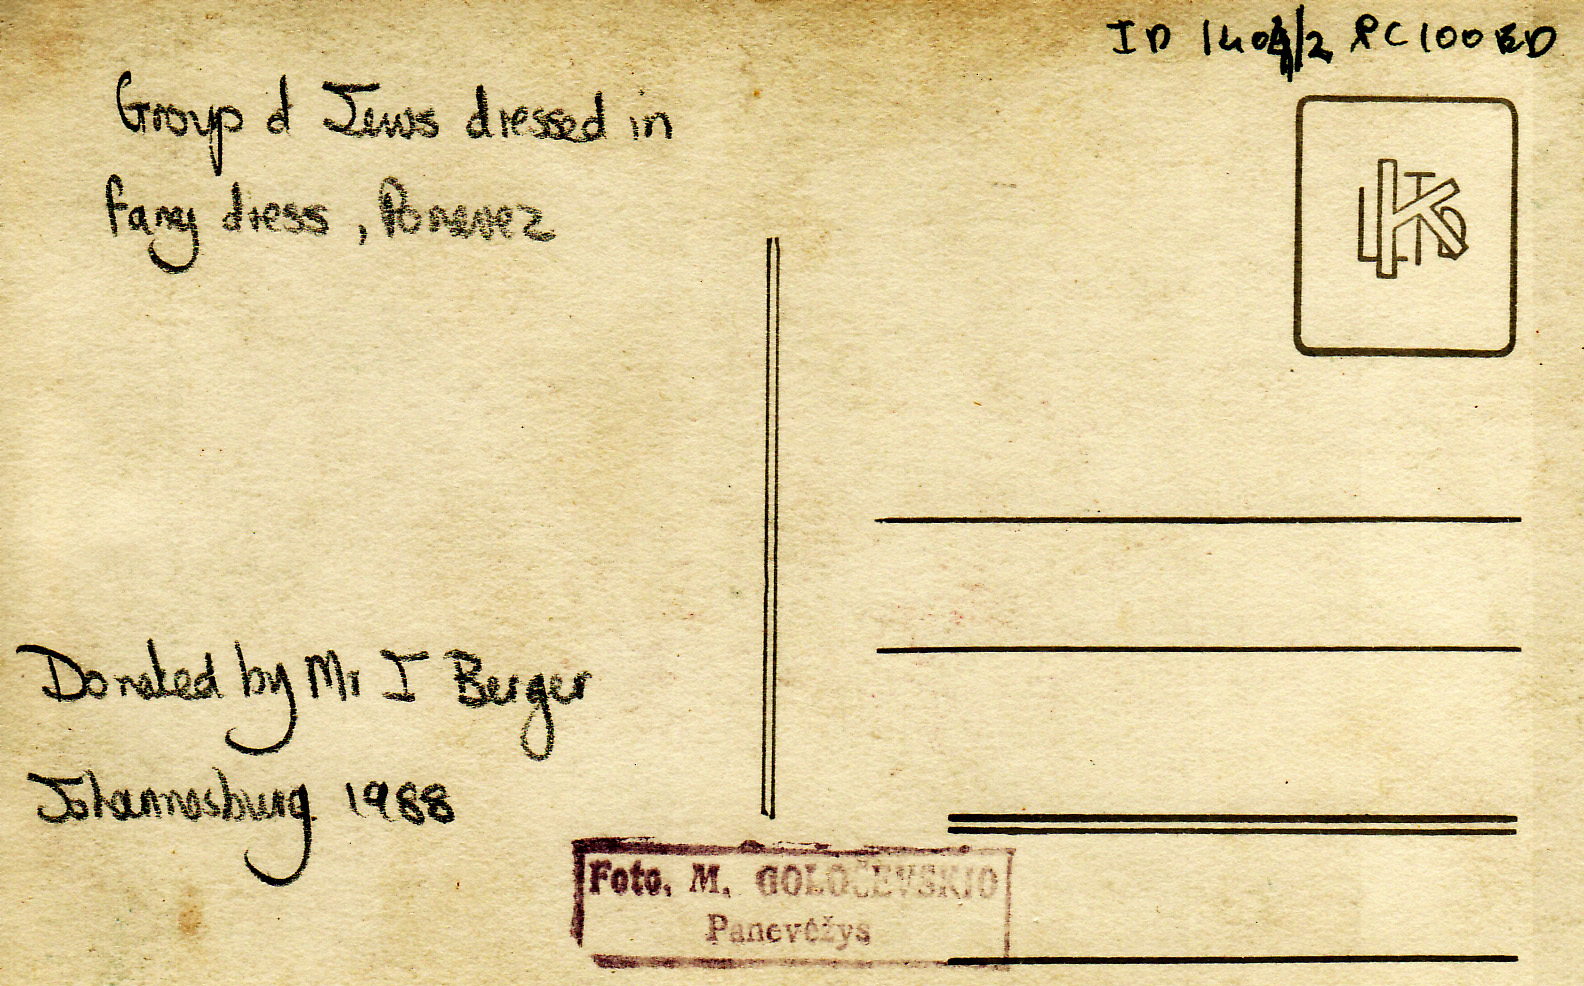 ID 1404/2 PC100 ED
Group of Jews dressed in
fany dress, Ponevez
Donated by Mr I Berger
Johannesburg. 1988
Foto. M. GOLOČEVSKIO
Panevėžys